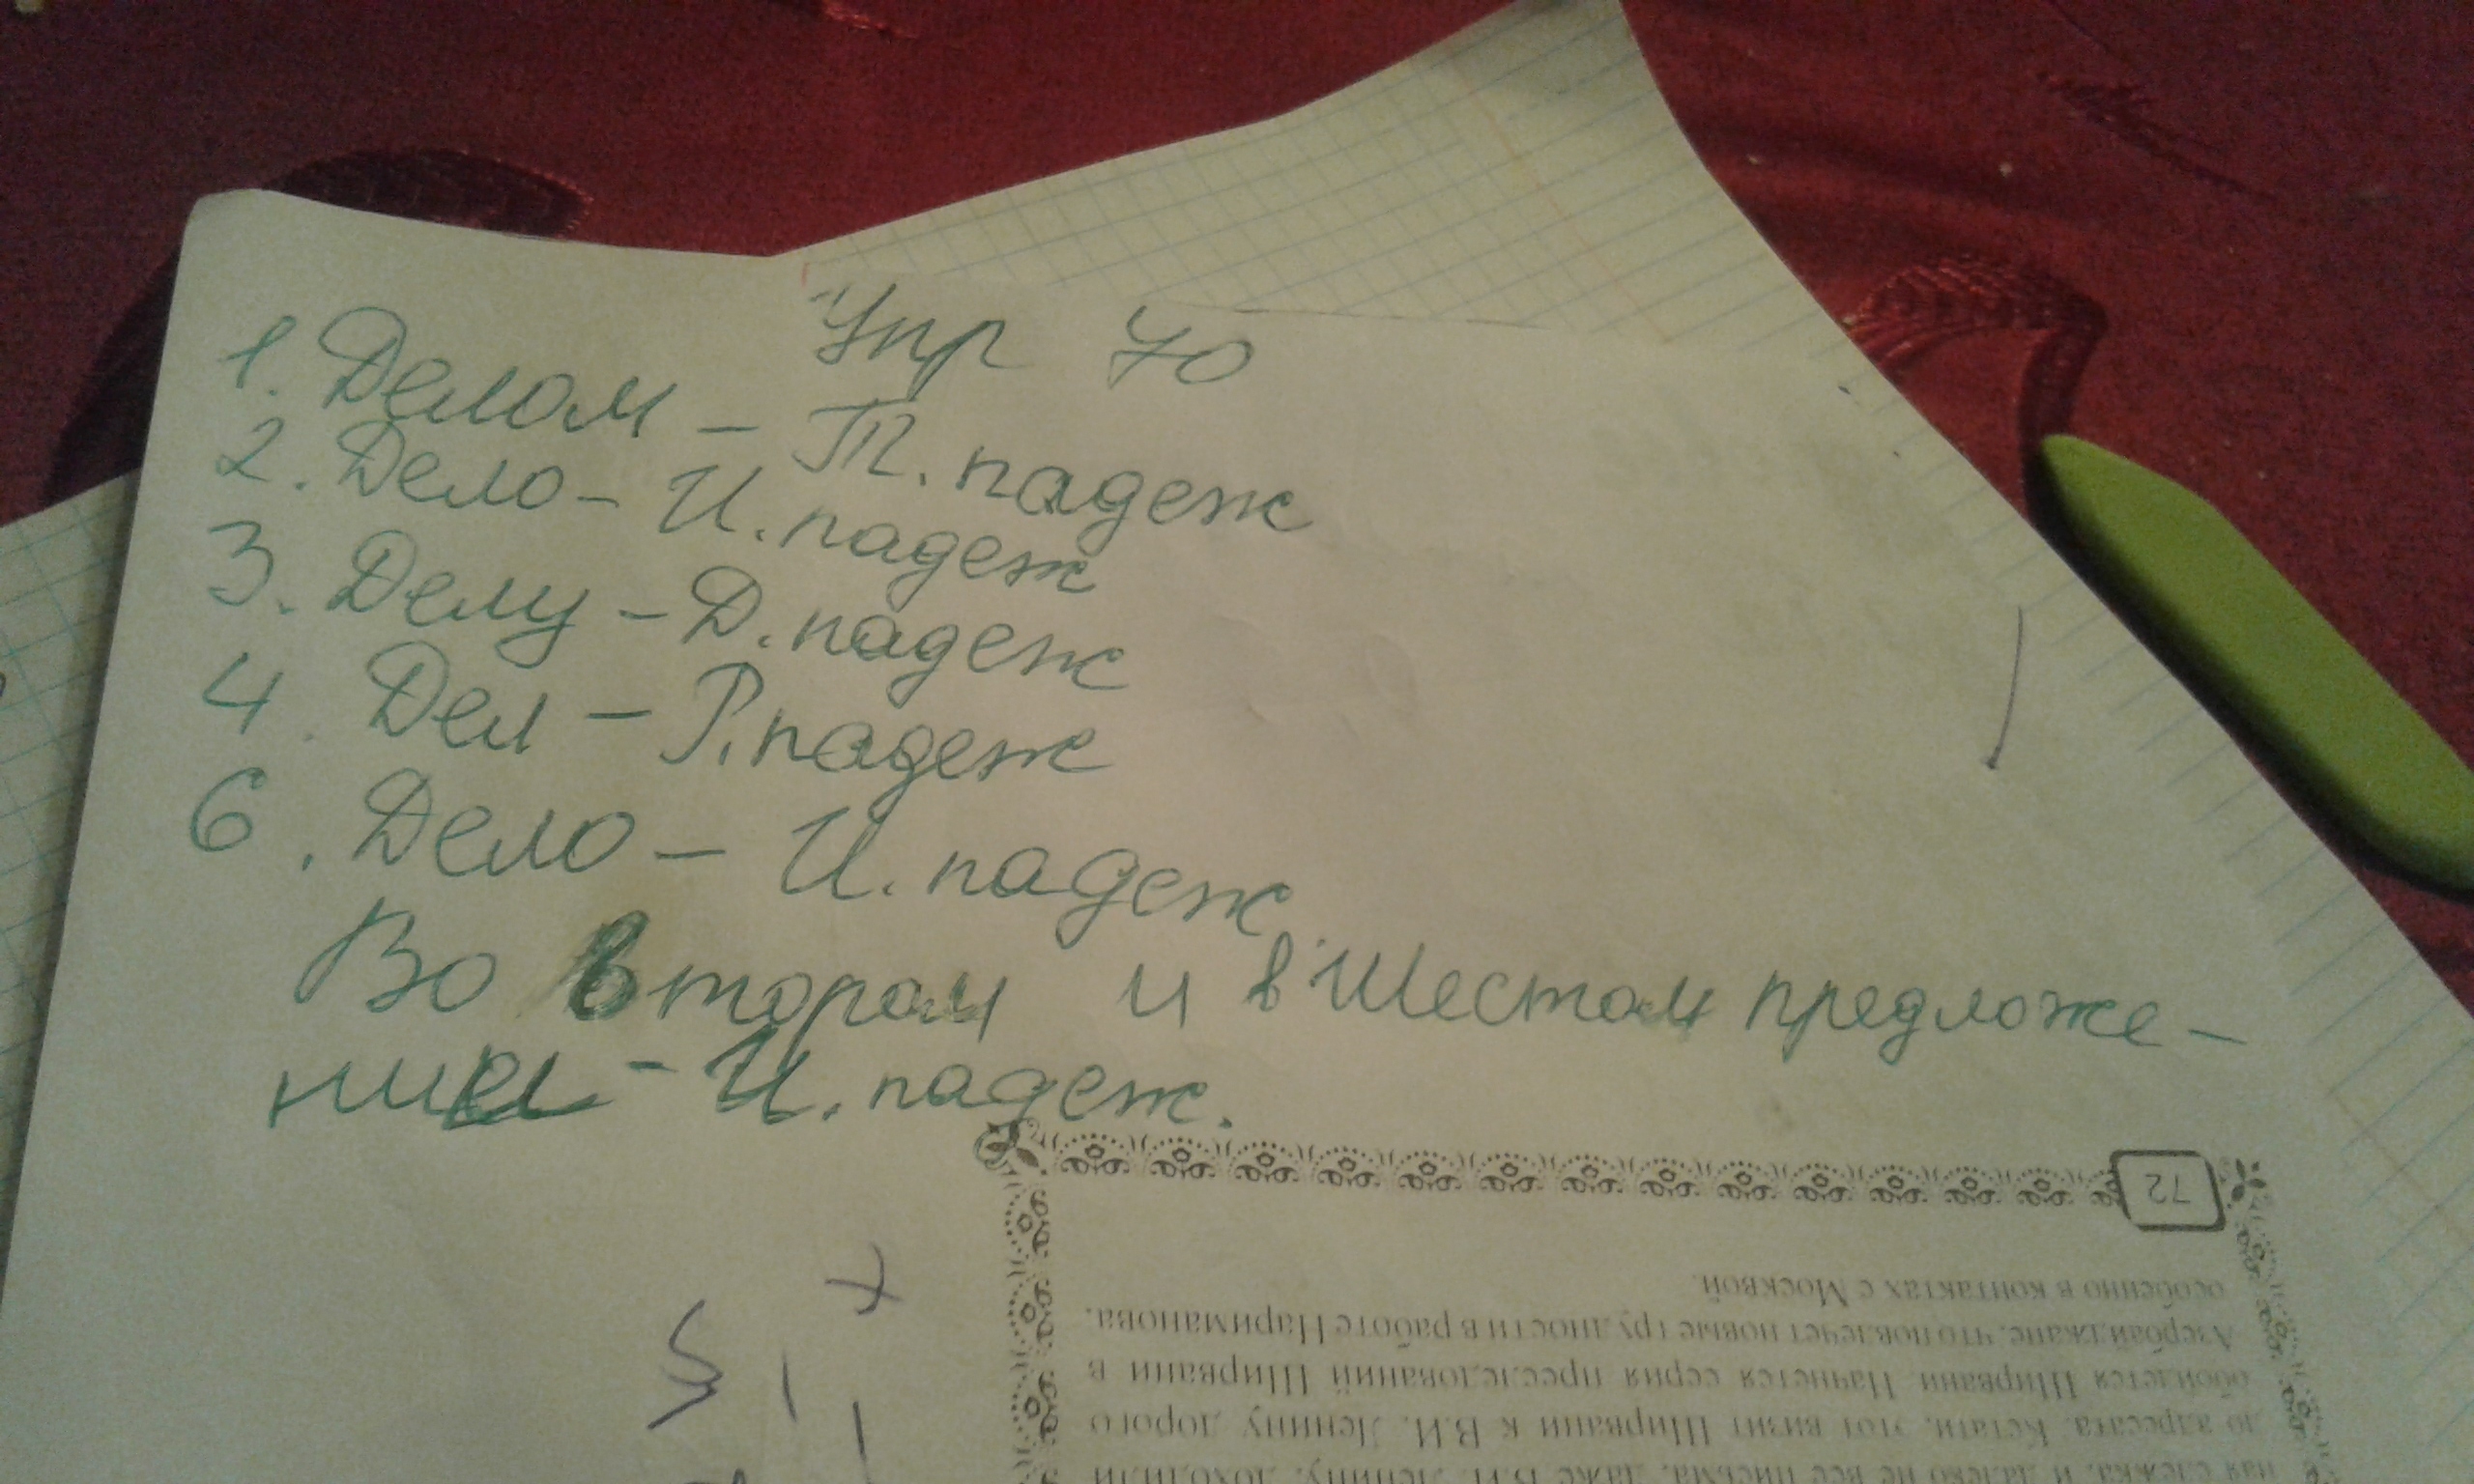 Упр 70
1. Делом - Т. падеж
2. Дело - И. падеж
3. Делу - Д. падеж
4. Дел - Р. падеж
6. Дело - И. падеж.
Во втором и в шестом предложе-
нии - И. падеж.
+
5 1
72
особенно в контактах с Москвой.
Азербайджане, что повлечет новые трудности в работе Нариманова,
обойдется Ширвани. Начнется серия преследований Ширвани в
до адресата. Кстати, этот визит Ширвани к В.И. Ленину дорого
ная слежка, и далеко не все письма, даже В.И. Ленину, доходили